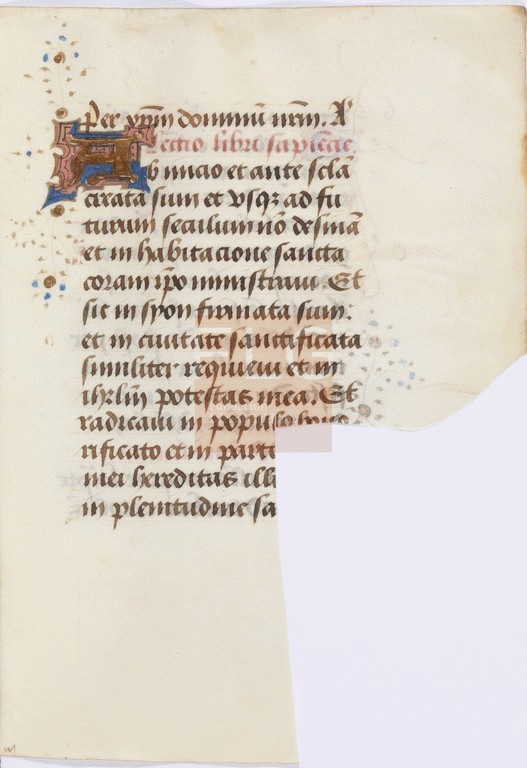 Per xp̄m dominū nr̄m. A'
Lectio libri sapiēcie.
Ab inicio et ante sclā
creata sum et vsqꝫ ad fu
turum seculum nō desinā
et in habitacione sancta
coram ip̄o ministraui. Et
sic in syon firmata sum:
et in ciuitate sanctificata
similiter requieui et in
ihrl̄m potestas mea. Et
radicaui in populo hono
rificato et in parte
mei hereditas illi
in plenitudine sa